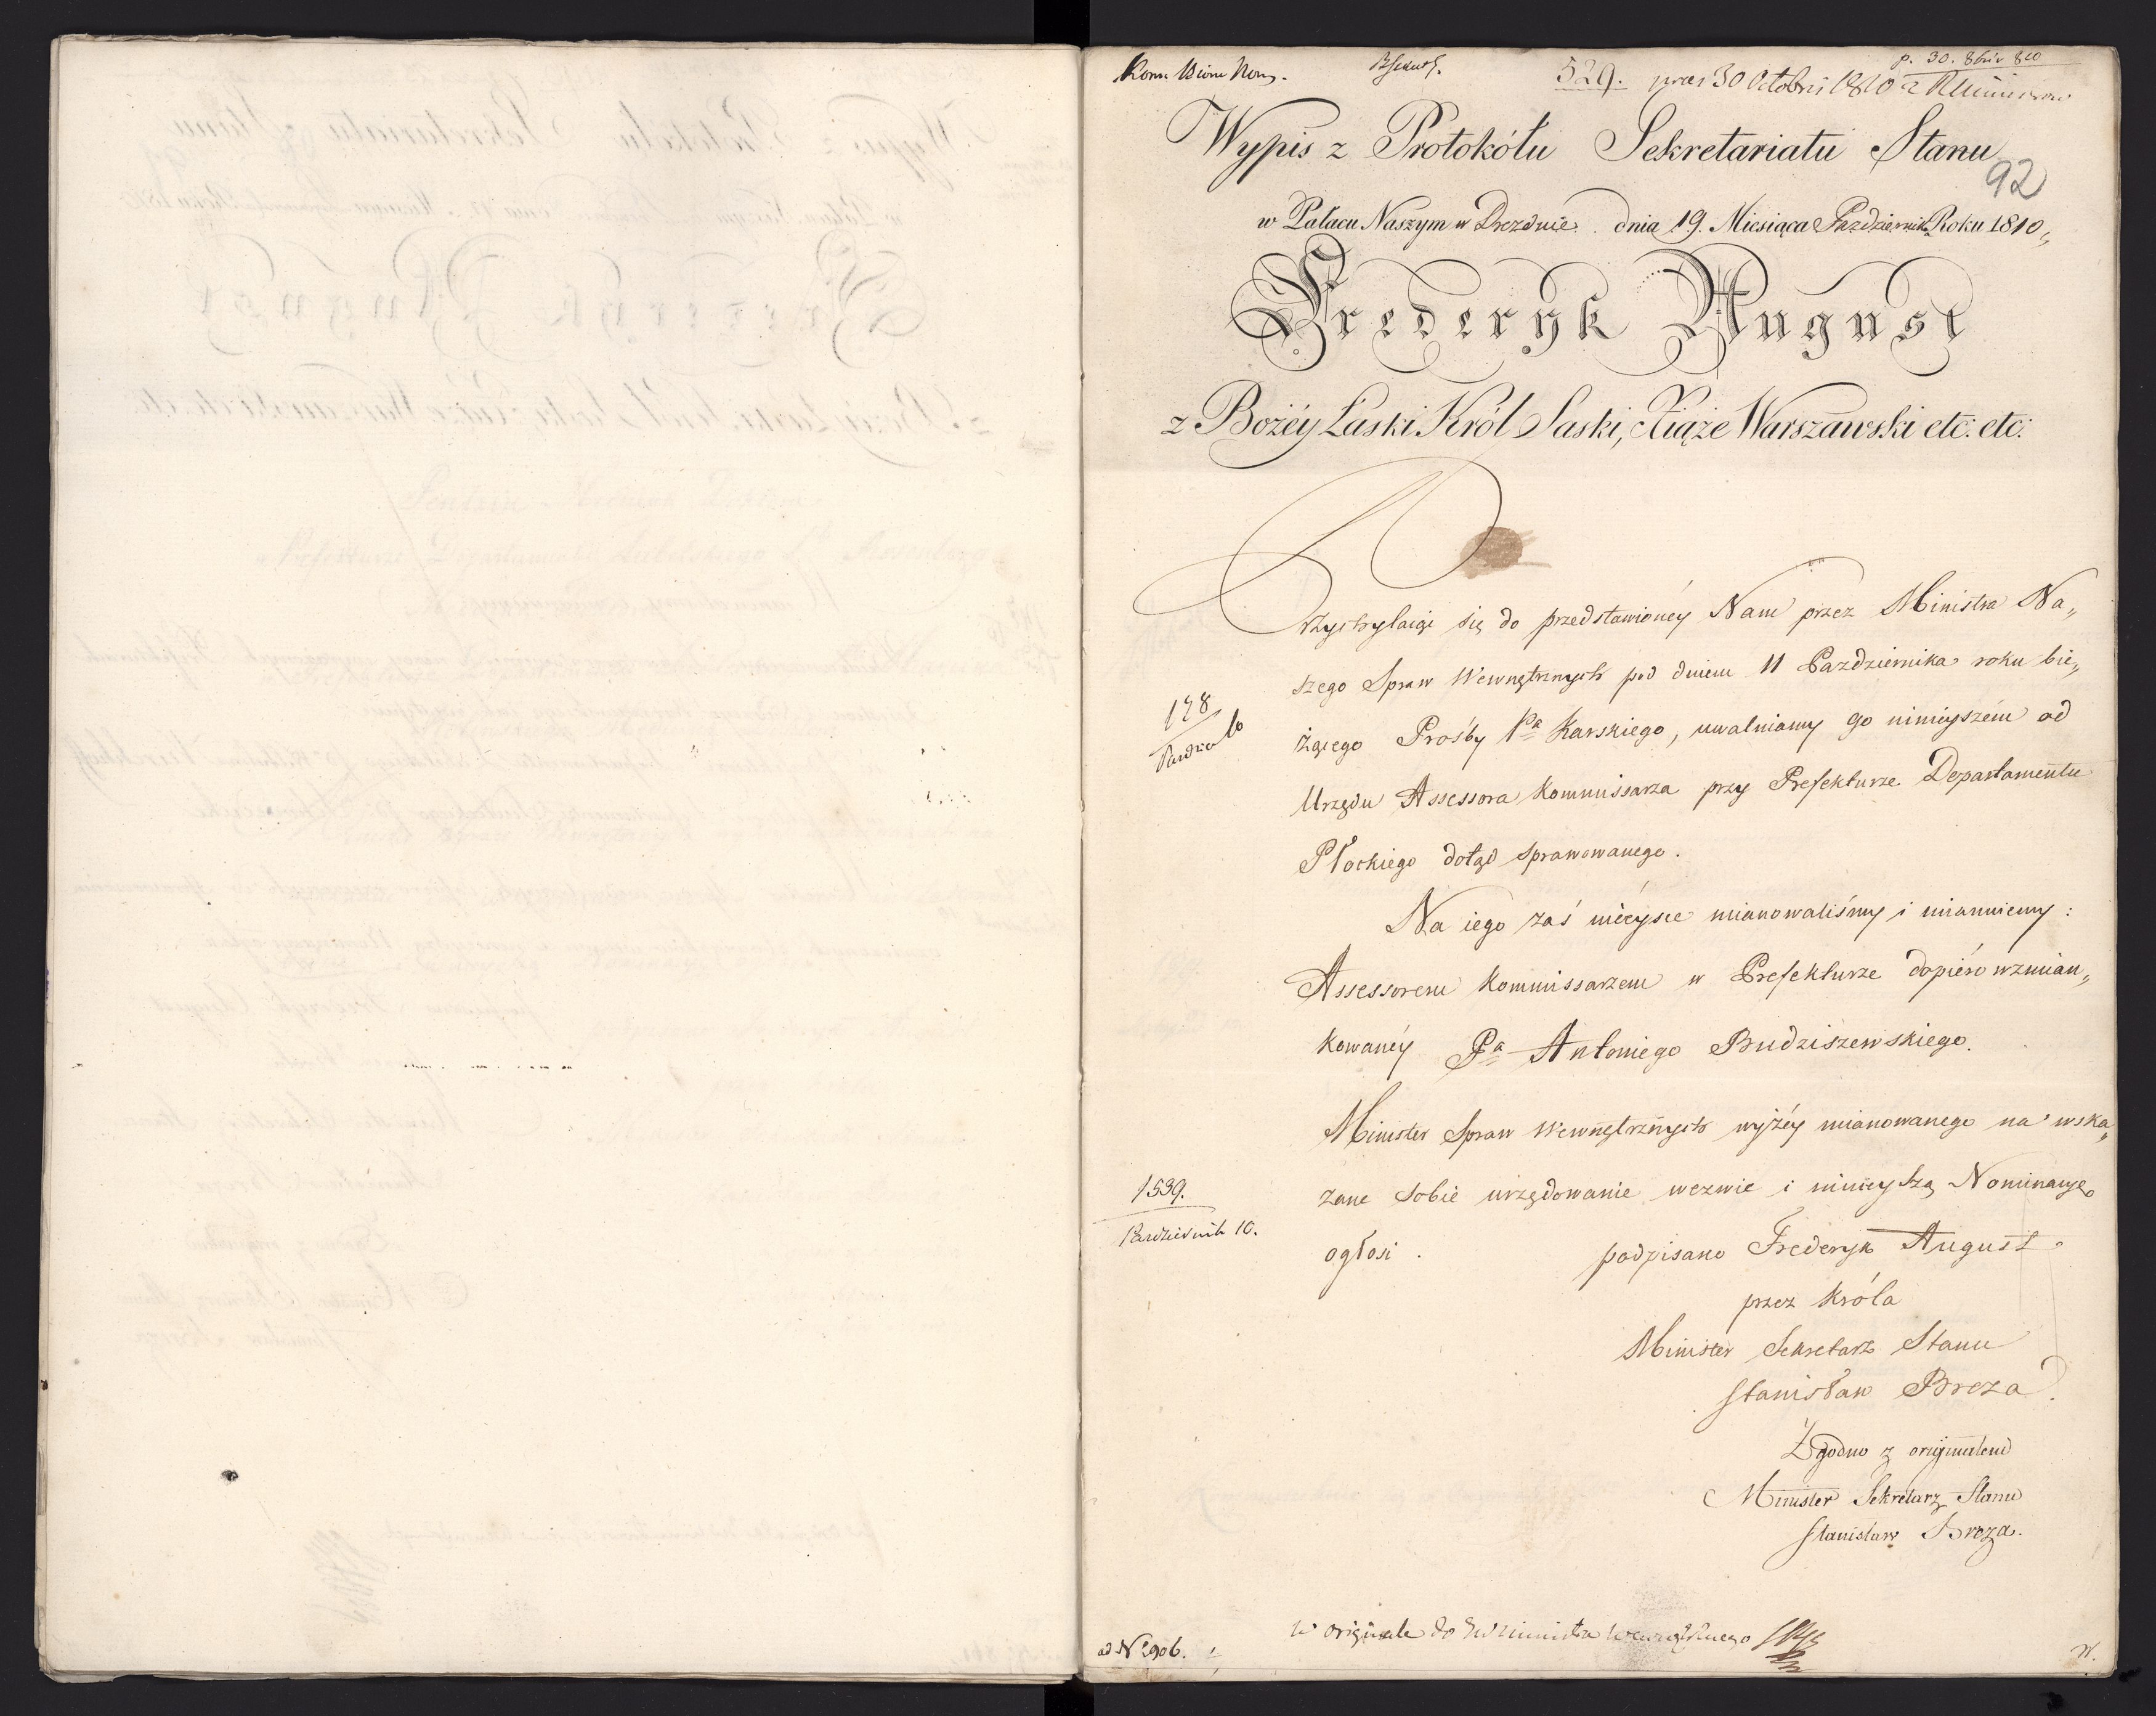 529. 30 Octobris 1810
p. 30. 8bris 810
Wypis z Protokółu Sekretariatu Stanu
92
w Pałacu Naszym w Dreznie dnia 19. Miesiąca Pazdziernika Roku 1810„
Frederyk August
z Bożéy Łaski Król Saski, Xiąże Warszawski etc: etc:
Przychylaiąc się do przedstawionéy Nam przez Ministra Na„
szego Spraw Wewnętrznych pod dniem 11 Pazdziernika roku bie„
żącego Prośby Pa Karskiego, uwalniamy go ninieyszém od
Urzędu Assessora Kommissarza przy Prefekturze Departamentu
Płockiego dotąd sprawowanego.
Na iego zaś mieysce mianowaliśmy i mianuiemy:
Assessorem Kommissarzem w Prefekturze dopiéro wzmian„
kowanéy Pa Antoniego Budziszewskiego.
Minister Spraw Wewnętrznych wyżéy mianowanego na wska„
zane sobie urzędowanie wezwie i ninieyszą Nominacyę
ogłosi.
podpisano Frederyk August
przez Króla
Minister Sekretarz Stanu
Stanisław Breza.
Zgodno z originałem
Minister Sekretarz Stanu
Stanisław Breza.
178
10
1539.
Pazdziernik 10.
w originale do
ad N 2906.